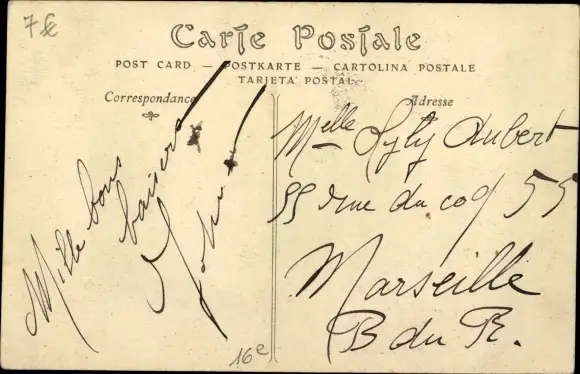 7€
Carte Postale
POST CARD — POSTKARTE — CARTOLINA POSTALE
TARJETA POSTAL
Correspondance
Adresse
Mille bons
baisers
Melle Lyly Aubert
55 rue du coq 55
Marseille
B du R.
16e